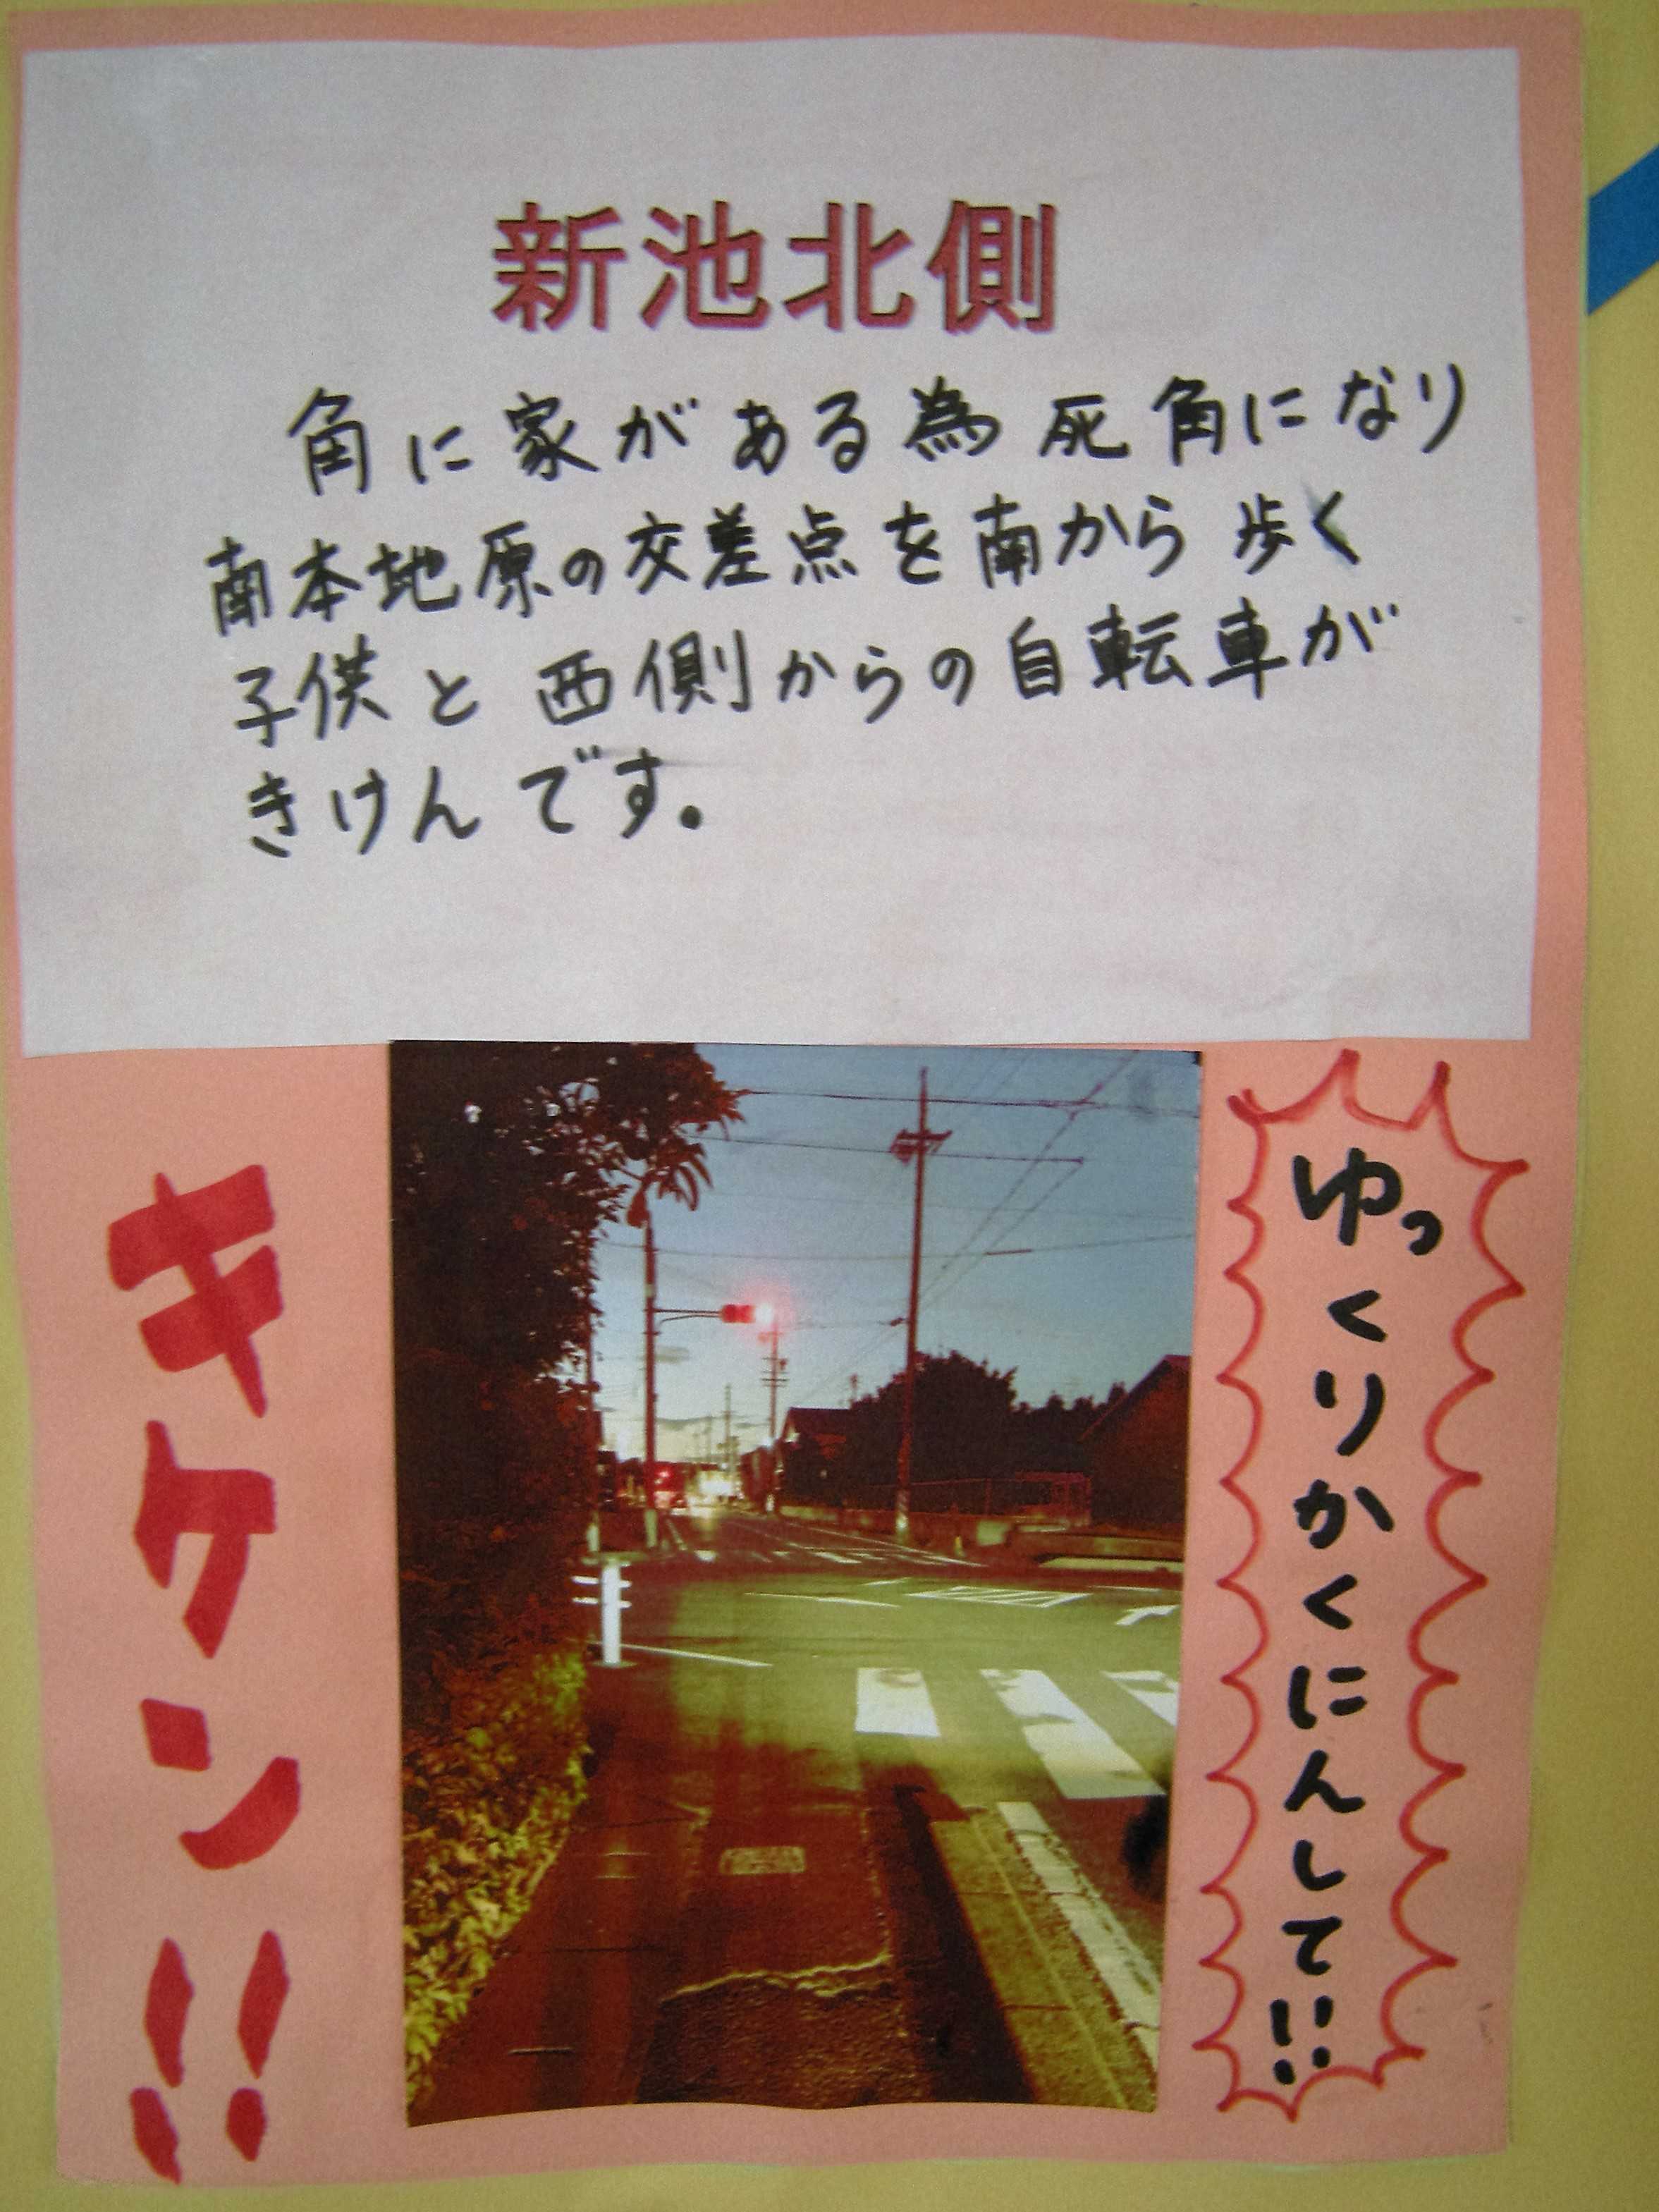 新池北側
角に家がある為死角になり
南本地原の交差点を南から歩く
子供と西側からの自転車が
きけんです。
ゆっくりかくにんして!!
キケン!!